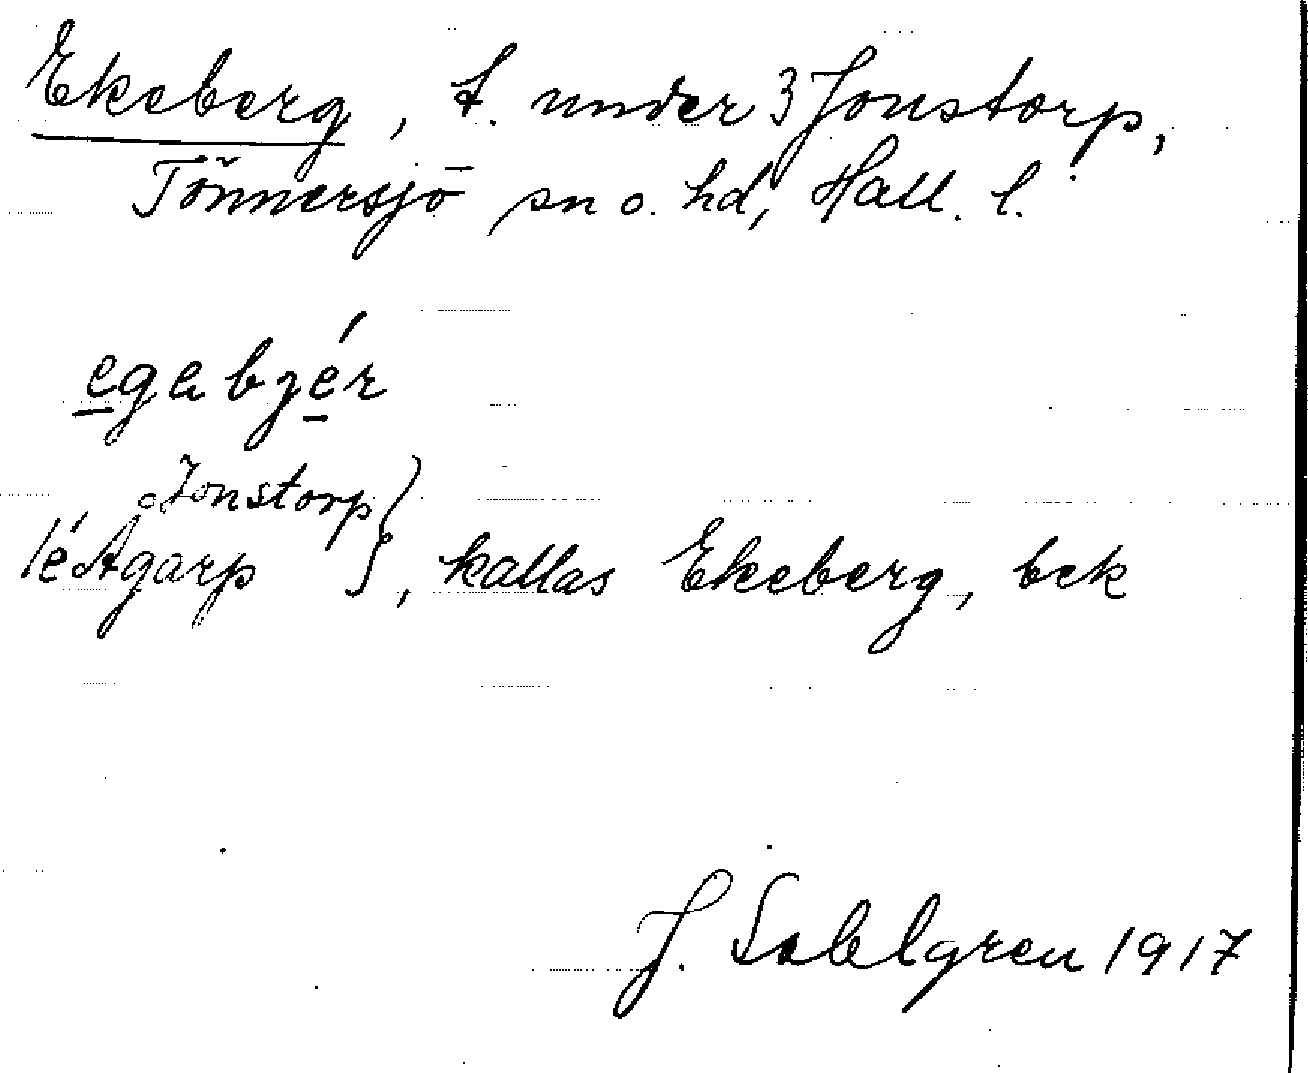 Ekeberg, t. under 3 Jonstorp,
Tönnersjö sn o. hd, Hall. l.
egabjér
Jonstorp}
1/2 Agarp }, kallas Ekeberg, bek
J. Sahlgren 1917